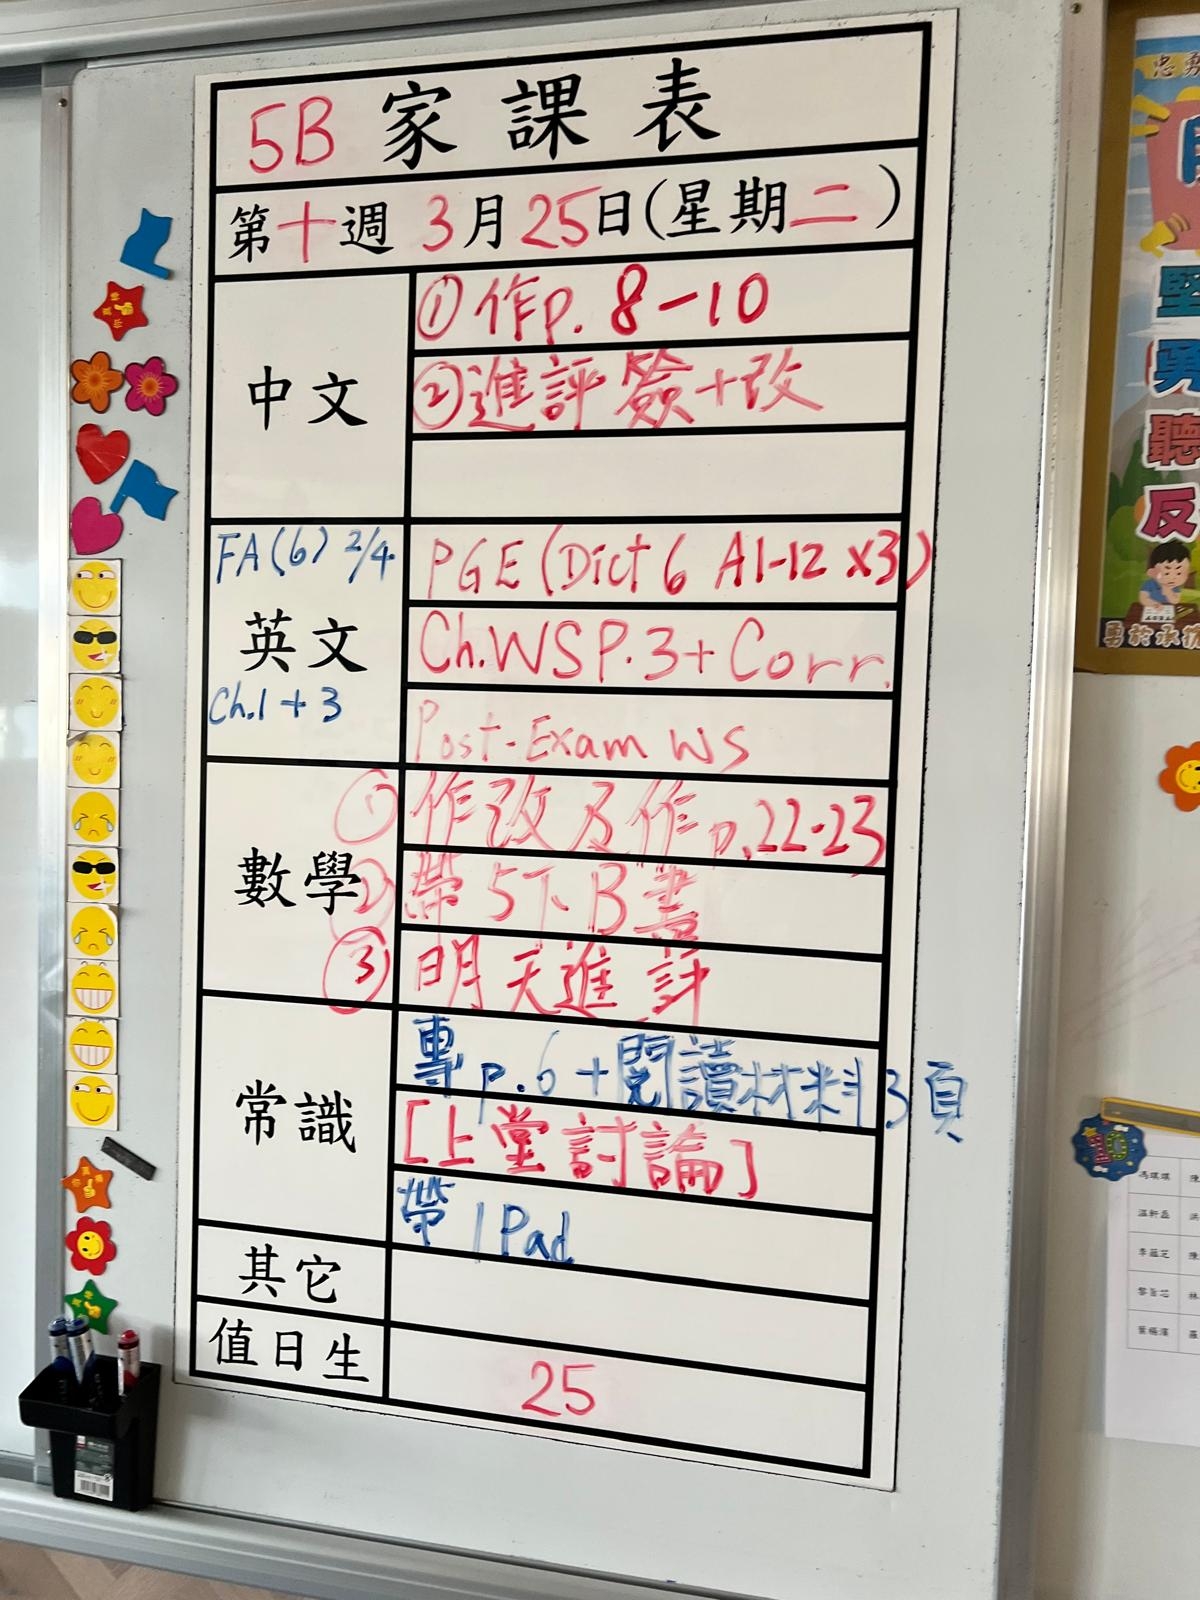 5B 家課表
第十週 3月25日(星期二)
中文
①作p. 8-10
②進評簽+改
FA(6) 2/4
英文
Ch.1 + 3
PGE (Dict 6 A1-12 x3)
Ch.WS P.3 + Corr.
Post-Exam WS
數學
①作改及作p.22-23
②帶5下B書
③明天進評
常識
專p.6+閱讀材料3頁
[上堂討論]
帶 IPad
其它
值日生
25
忠勇
堅
勇
聽
反
勇於承擔
10
馮琪琪 陳
溫軒磊 洪